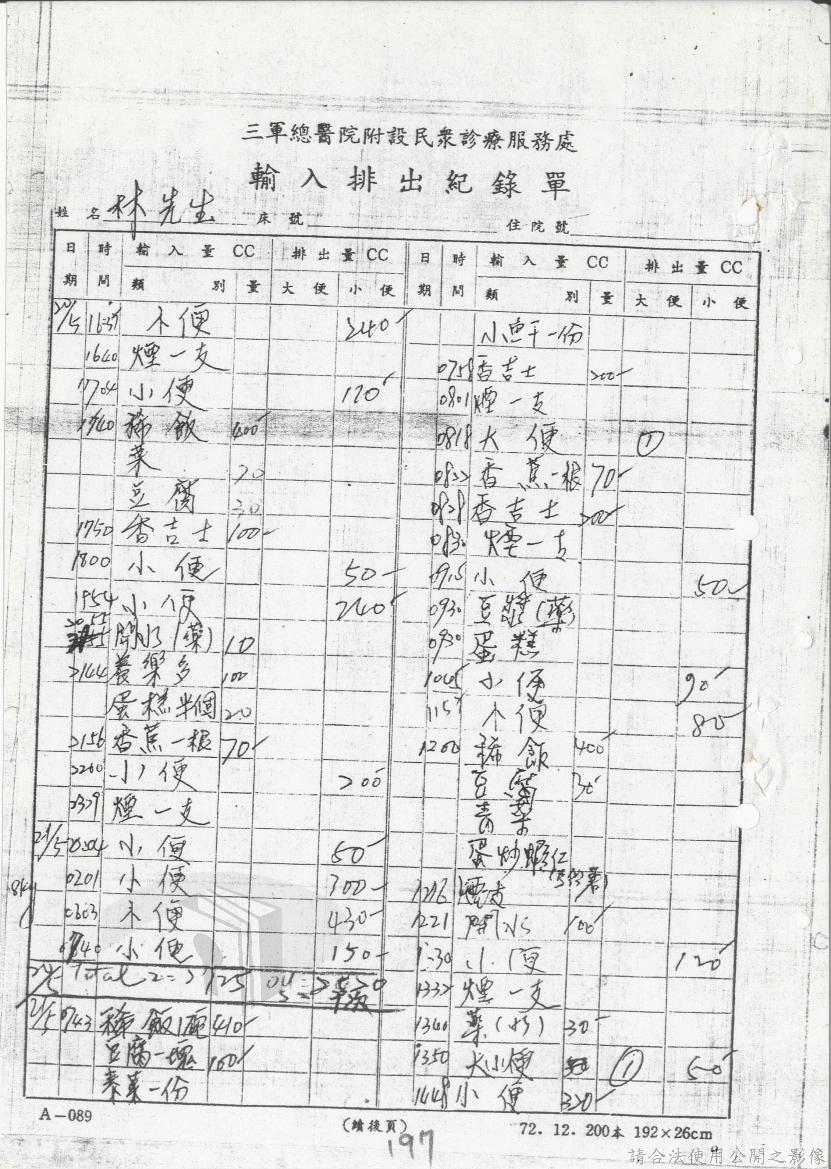 三軍總醫院附設民衆診療服務處
輸入排出紀錄單
姓名 林先生 床號 住院號
日期 時間 輸入量CC 類別 量 排出量CC 大便 小便
1637 小便 240
1640 煙一支
1704 小便 120
1740 稀飯 400
菜 20
豆腐 30
1750 香吉士 100
1800 小便 50
1954 小便 240
開水(藥) 10
2144 養樂多 100
蛋糕半個 20
2156 香蕉一根 70
2200 小便 200
2329 煙一支
21/5 0004 小便 50
0201 小便 300
8kg
0603 小便 430
0740 小便 150
Total
21/5 0743 稀飯1碗 410
豆腐一塊 100
素菜一份
日期 時間 輸入量CC 類別 量 排出量CC 大便 小便
一份
0758 香吉士 200
0801 煙一支
0818 大便 ①
0822 香蕉一根 70
0828 香吉士 200
0830 煙一支
0915 小便 50
0930 豆漿(藥)
0930 蛋糕
1045 小便 90
1157 小便 80
1200 稀飯 400
豆腐 30
青菜
蛋炒蝦仁
1216 煙支
1221 開水 100
1330 小便 120
1332 煙一支
1340 藥(水) 30
1350 大小便 ① 50
1448 小便 320
A-089
(續後頁)
72.12.200本 192×26cm
197
請合法使用公開之影像